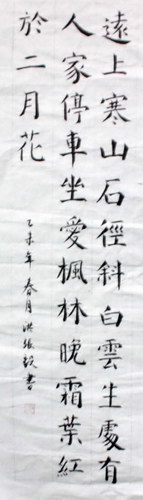 遠上寒山石徑斜白雲生處有
人家停車坐愛楓林晚霜葉紅
於二月花
乙未年 春月 洪振毅書